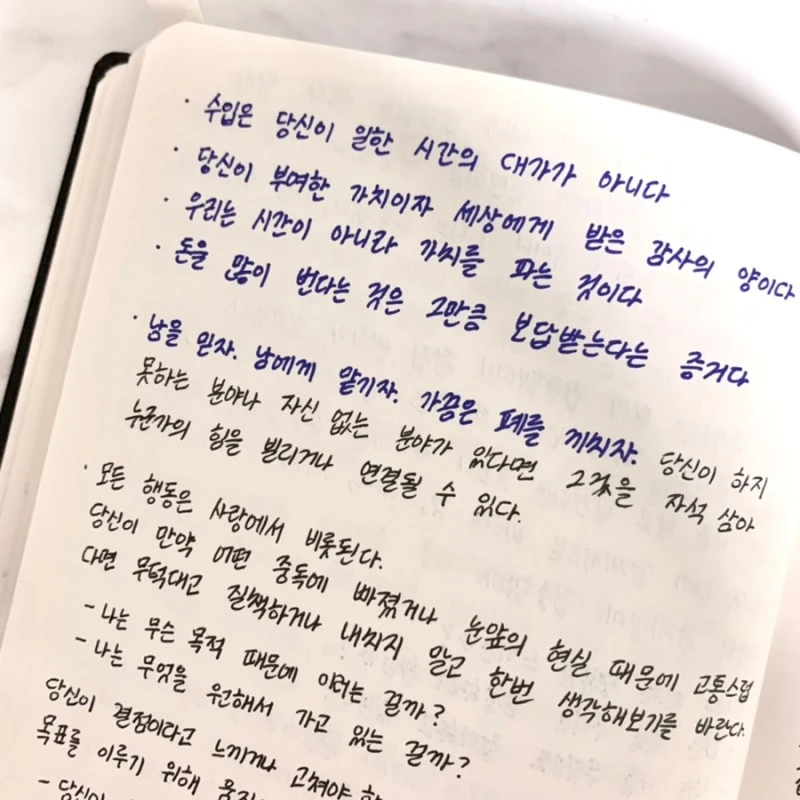 · 수입은 당신이 일한 시간의 대가가 아니다
· 당신이 부여한 가치이자 세상에게 받은 감사의 양이다
· 우리는 시간이 아니라 가치를 파는 것이다
· 돈을 많이 번다는 것은 그만큼 보답받는다는 증거다
· 남을 믿자. 남에게 맡기자. 가끔은 폐를 끼치자. 당신이 하지
못하는 분야나 자신 없는 분야가 있다면 그것을 자석 삼아
누군가의 힘을 빌리거나 연결될 수 있다.
· 모든 행동은 사랑에서 비롯된다.
당신이 만약 어떤 중독에 빠졌거나 눈앞의 현실 때문에 고통스럽
다면 무턱대고 질책하거나 내치지 말고 한번 생각해보기를 바란다.
- 나는 무슨 목적 때문에 이러는 걸까?
- 나는 무엇을 원해서 가고 있는 걸까?
당신이 결점이라고 느끼거나 고쳐야
목표를 이루기 위해
- 당신이